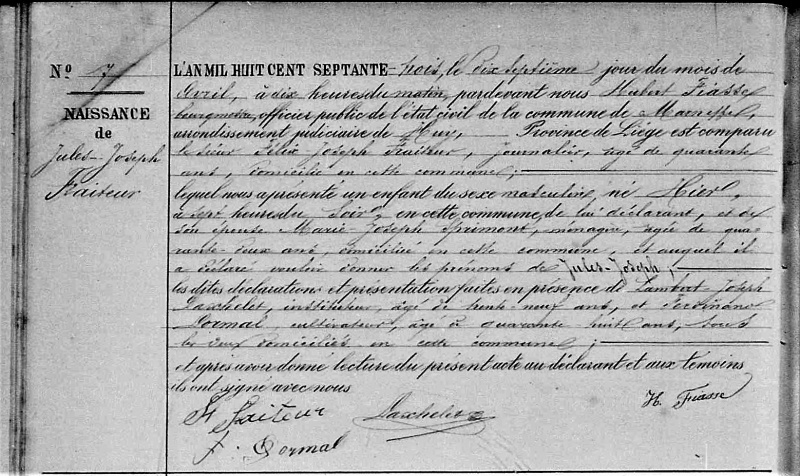 N° 7
NAISSANCE
de
Jules-Joseph
Fraiteur
L'AN MIL HUIT CENT SEPTANTE-trois, le dix septième jour du mois de
Avril, à dix heures du matin, pardevant nous Hubert Fiasse
bourgmestre, officier public de l'état civil de la commune de Marneffe,
arrondissement judiciaire de Huy, Province de Liège est comparu
le sieur Félix Joseph Fraiteur, journalier, âgé de quarante
ans, domicilié en cette commune;
lequel nous a présenté un enfant du sexe masculin, né Hier,
à sept heures du soir, en cette commune, de lui déclarant, et de
son épouse Marie-Joseph Sprimont, ménagère, âgée de qua-
rante-deux ans, domiciliée en cette commune, et auquel il
a déclaré vouloir donner les prénoms de Jules-Joseph;
les dites déclaration et présentation faites en présence de Lambert-Joseph
Daxhelet, instituteur, âgé de trente neuf ans, et Ferdinand
Dormal, cultivateur, âgé de quarante huit ans, tous
les deux domiciliés en cette commune;
et après avoir donné lecture du présent acte au déclarant et aux témoins
ils ont signé avec nous
H. Fiasse
Fraiteur
Daxhelet
F. Dormal